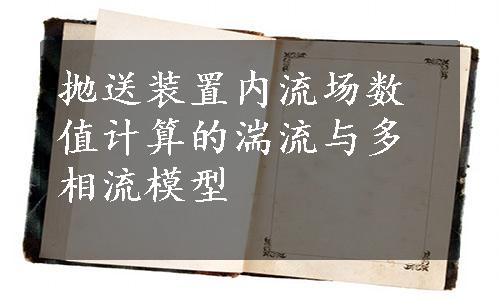 抛送装置内流场数
值计算的湍流与多
相流模型